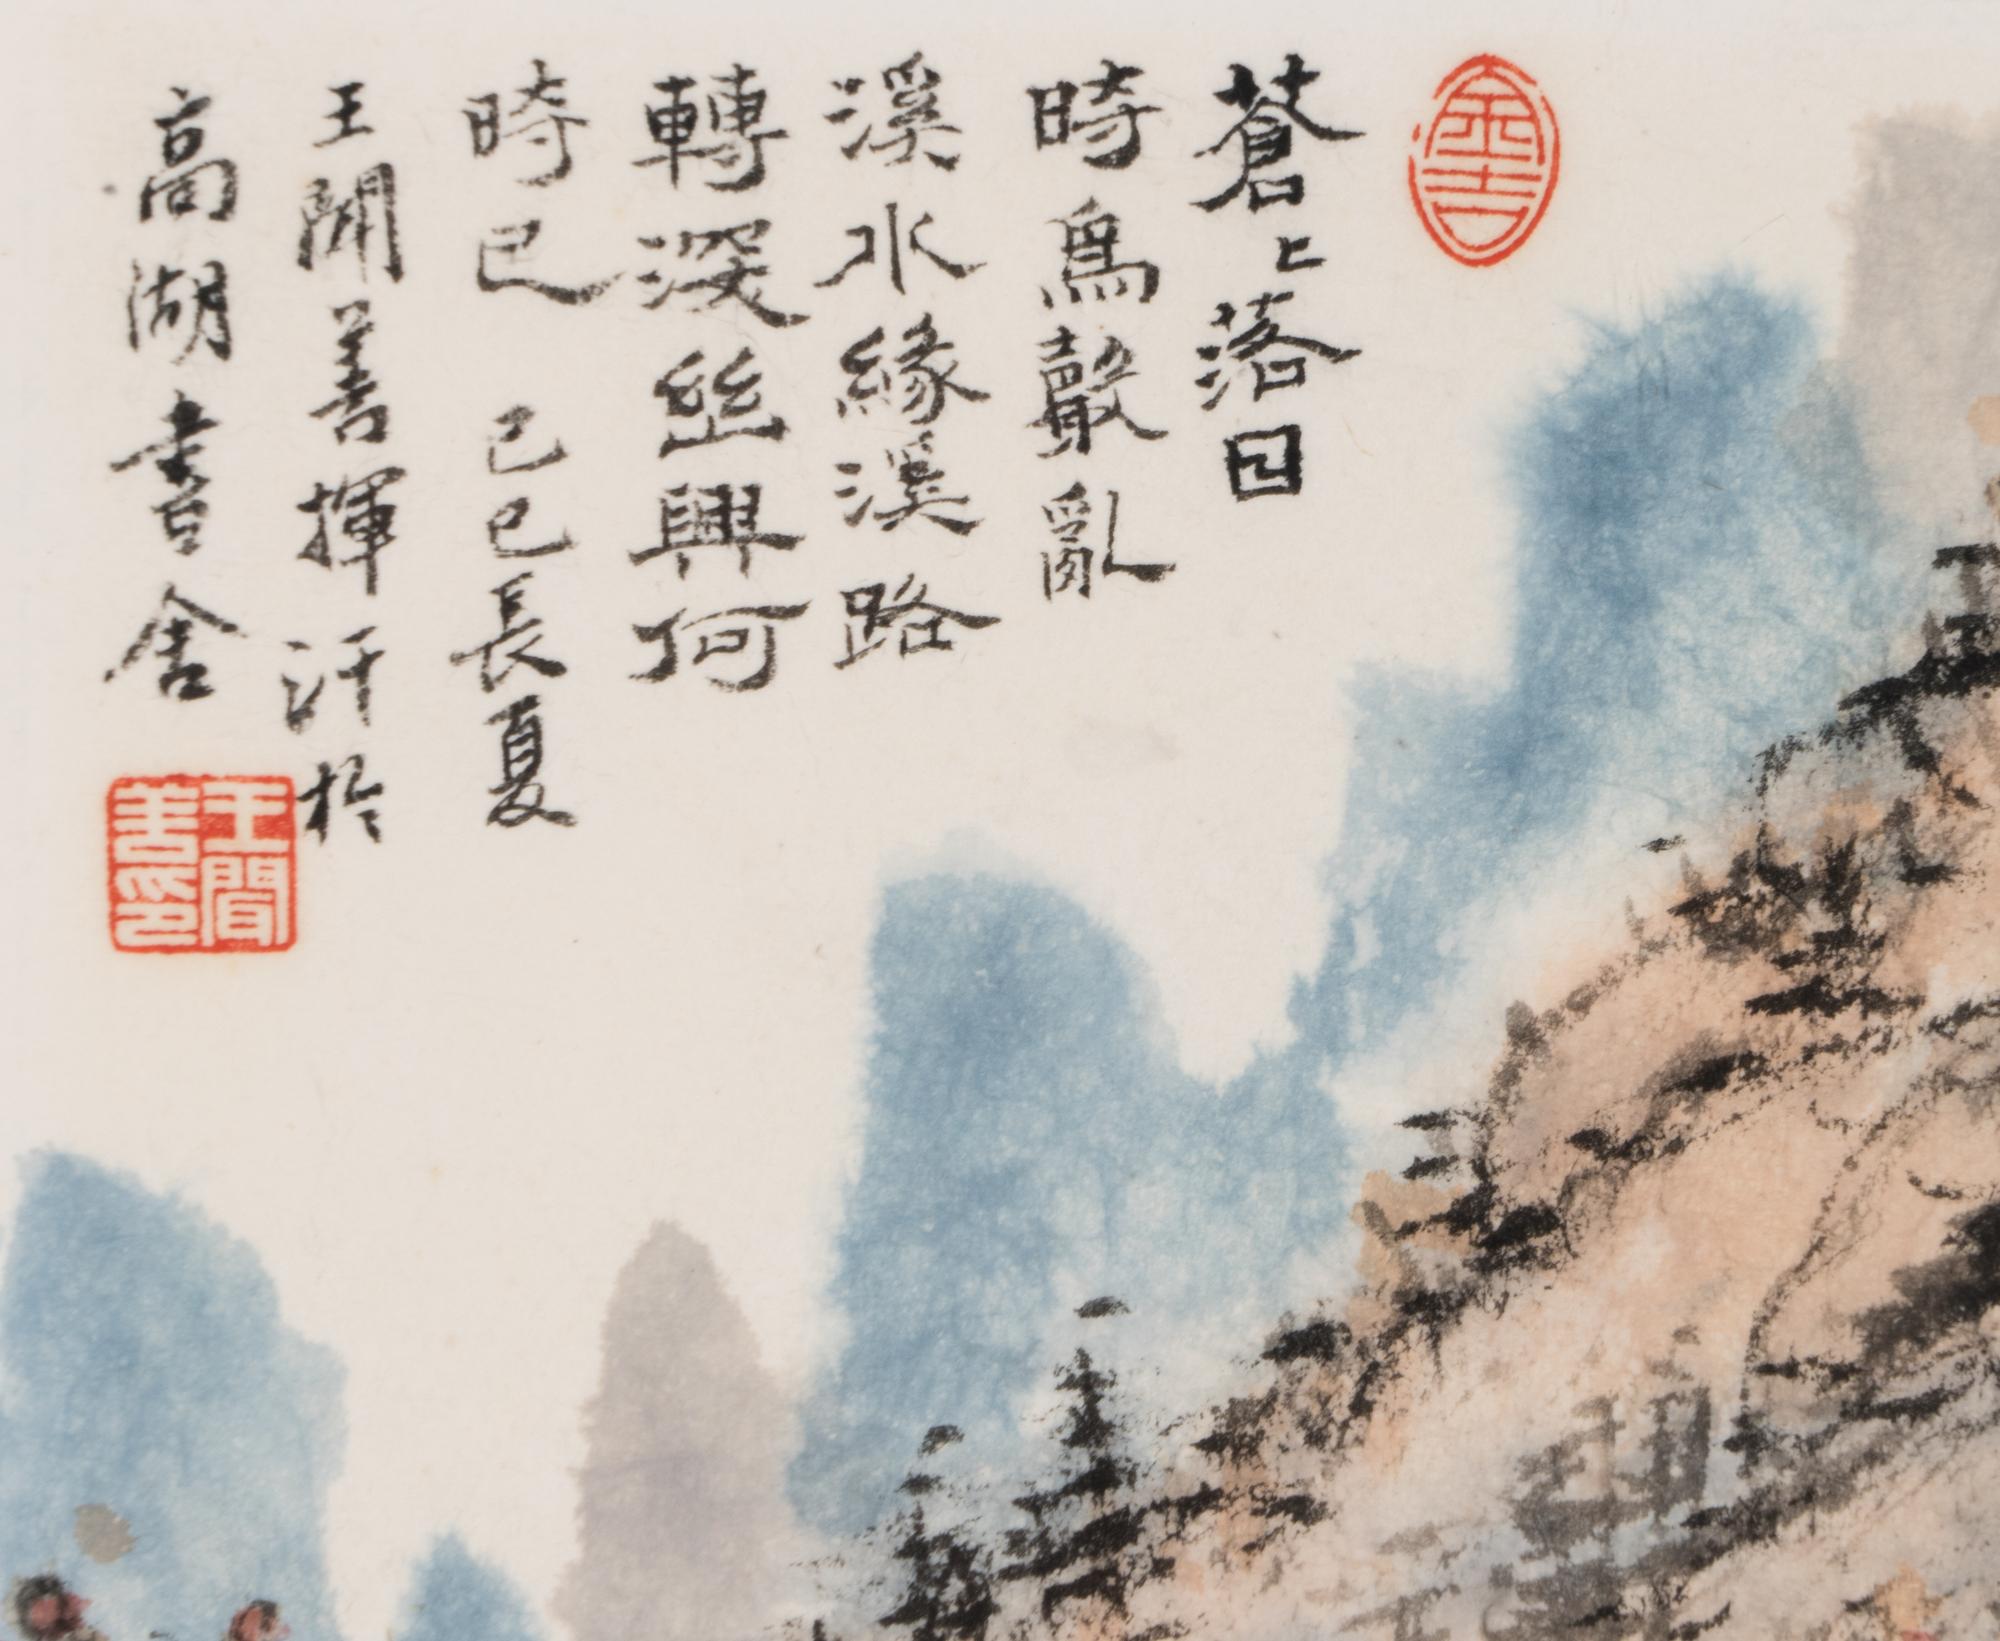 蒼〻落日
時鳥聲亂
溪水緣溪路
轉深幽興何
時已 己巳長夏
王聞善揮汗於
高湖書舍
王聞善印